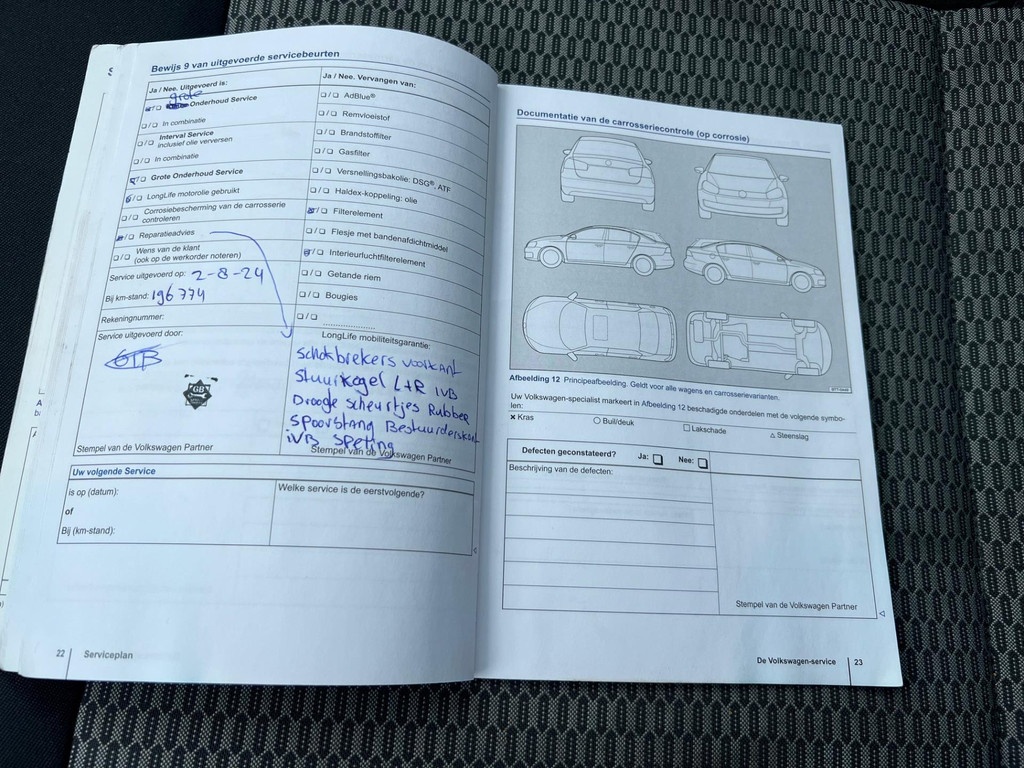 Bewijs 9 van uitgevoerde servicebeurten
Ja / Nee. Uitgevoerd is:
grote
❏/❏ Onderhoud Service
❏/❏ In combinatie
❏/❏ Interval Service
inclusief olie verversen
❏/❏ In combinatie
❏/❏ Grote Onderhoud Service
❏/❏ LongLife motorolie gebruikt
❏/❏ Corrosiebescherming van de carrosserie
controleren
❏/❏ Reparatieadvies
❏/❏ Wens van de klant
(ook op de werkorder noteren)
Service uitgevoerd op: 2-8-24
Bij km-stand: 196 774
Rekeningnummer:
Service uitgevoerd door:
GTB
GB
Stempel van de Volkswagen Partner
Ja / Nee. Vervangen van:
❏/❏ AdBlue®
❏/❏ Remvloeistof
❏/❏ Brandstoffilter
❏/❏ Gasfilter
❏/❏ Versnellingsbakolie: DSG®, ATF
❏/❏ Haldex-koppeling: olie
❏/❏ Filterelement
❏/❏ Flesje met bandenafdichtmiddel
❏/❏ Interieurluchtfilterelement
❏/❏ Getande riem
❏/❏ Bougies
❏/❏ ....................
LongLife mobiliteitsgarantie:
Schokbrekers voorkant
Stuurkogel L+R IVB
Droogte scheurtjes Rubber
Spoorstang Bestuurderskant
iVB Speling
Stempel van de Volkswagen Partner
Uw volgende Service
is op (datum):
of
Bij (km-stand):
Welke service is de eerstvolgende?
22 Serviceplan
Documentatie van de carrosseriecontrole (op corrosie)
Afbeelding 12 Principeafbeelding. Geldt voor alle wagens en carrosserievarianten.
Uw Volkswagen-specialist markeert in Afbeelding 12 beschadigde onderdelen met de volgende symbo-
len:
× Kras ○ Buil/deuk □ Lakschade △ Steenslag
Defecten geconstateerd? Ja: ❏ Nee: ❏
Beschrijving van de defecten:
Stempel van de Volkswagen Partner
De Volkswagen-service 23